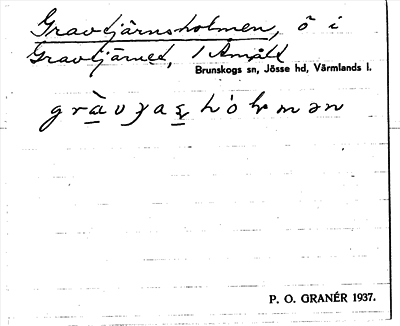 Gravtjärnsholmen, ö i
Gravtjärnet, 1 Åmått
Brunskogs sn, Jösse hd, Värmlands l.
P. O. GRANÉR 1937.